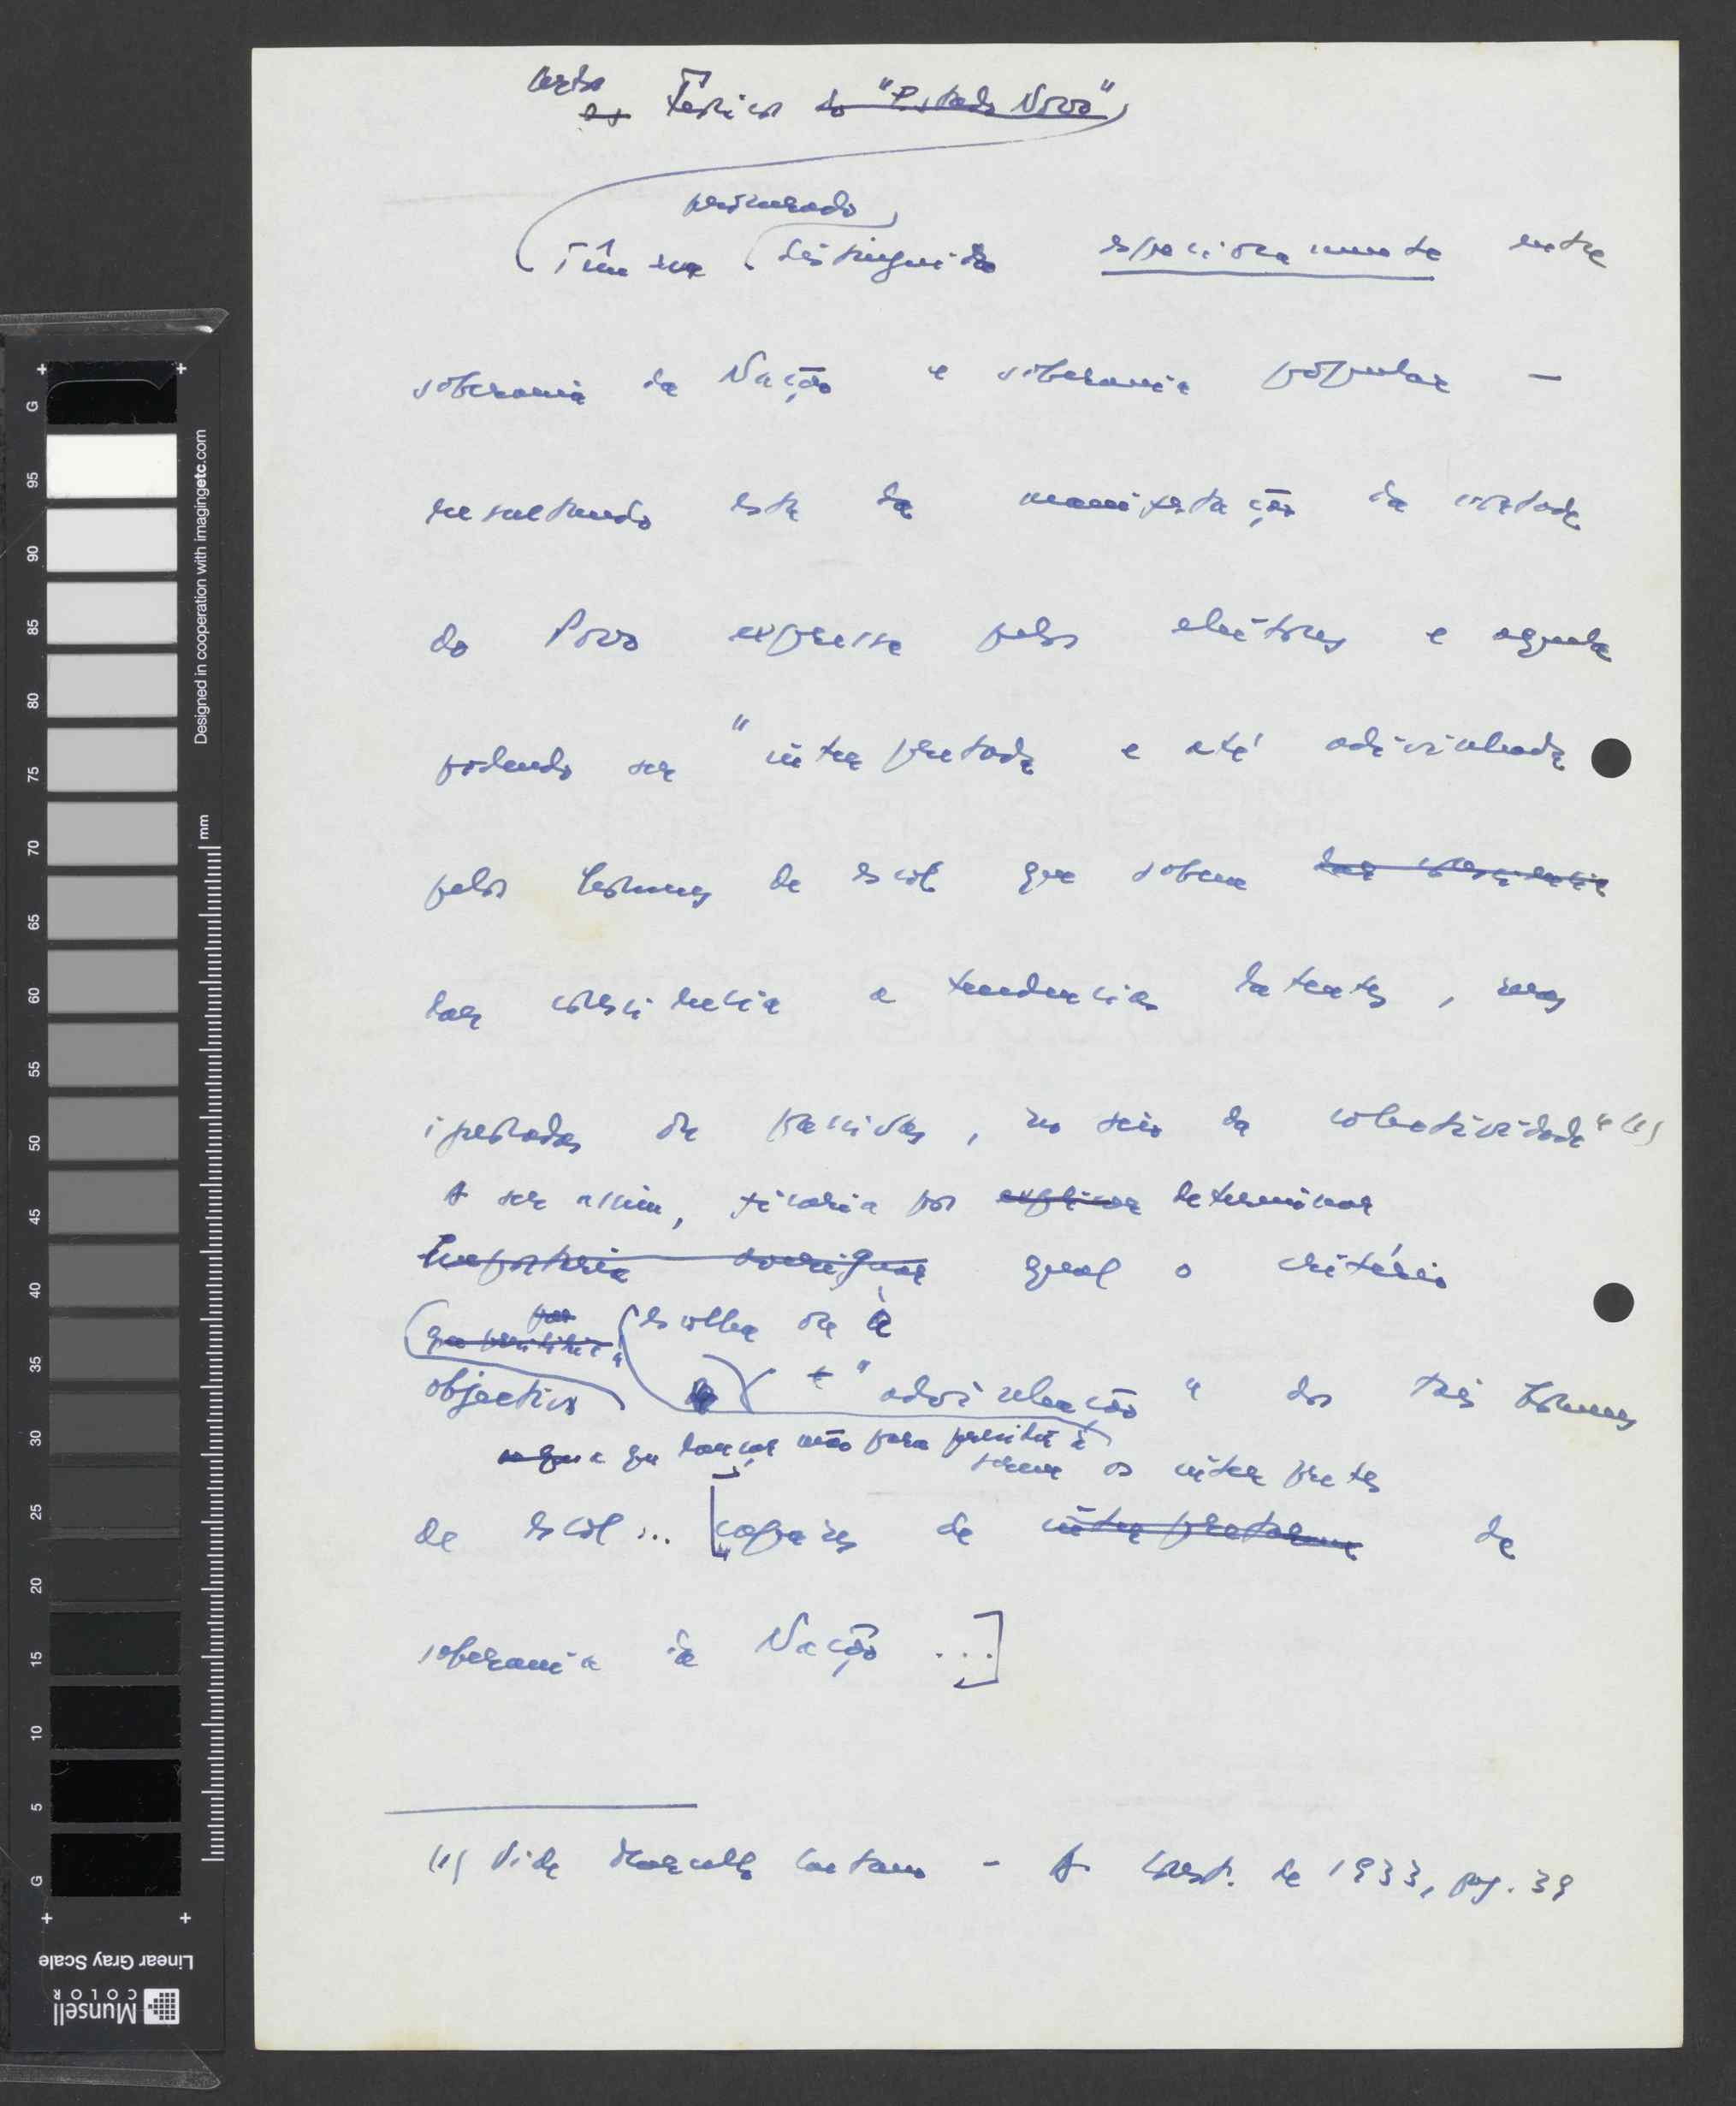 certos
os Teóricos do "Estado Novo"
procurado
Têm-se distinguido especiosamente entre
soberania da Nação e soberania popular —
resultando esta da manifestação da vontade
do Povo expressa pelos eleitores e aquela
podendo ser "interpretada e até adivinhada
pelos homens de escol que sobem dar consciência
dar consciência a tendencias latentes, mas
ignoradas ou passivas, no seio da colectividade" (1)
A ser assim, ficaria por explicar determinar
Importaria averiguar qual o critério
por
que permitiria escolha ou à
objectivo "adivinhação" dos tais homens
a que lançar mão para permitir a
serem os interpretes
de escol... [capazes de interpretarem da
soberania da Nação ...]
(1) Vide Marcello Caetano - A Const. de 1933, pag. 39
Designed in cooperation with imagingetc.com
mm
G 95 90 85 80 75 70 65 60 55 50 45 40 35 30 25 20 15 10 5 G
Linear Gray Scale
Munsell
COLOR